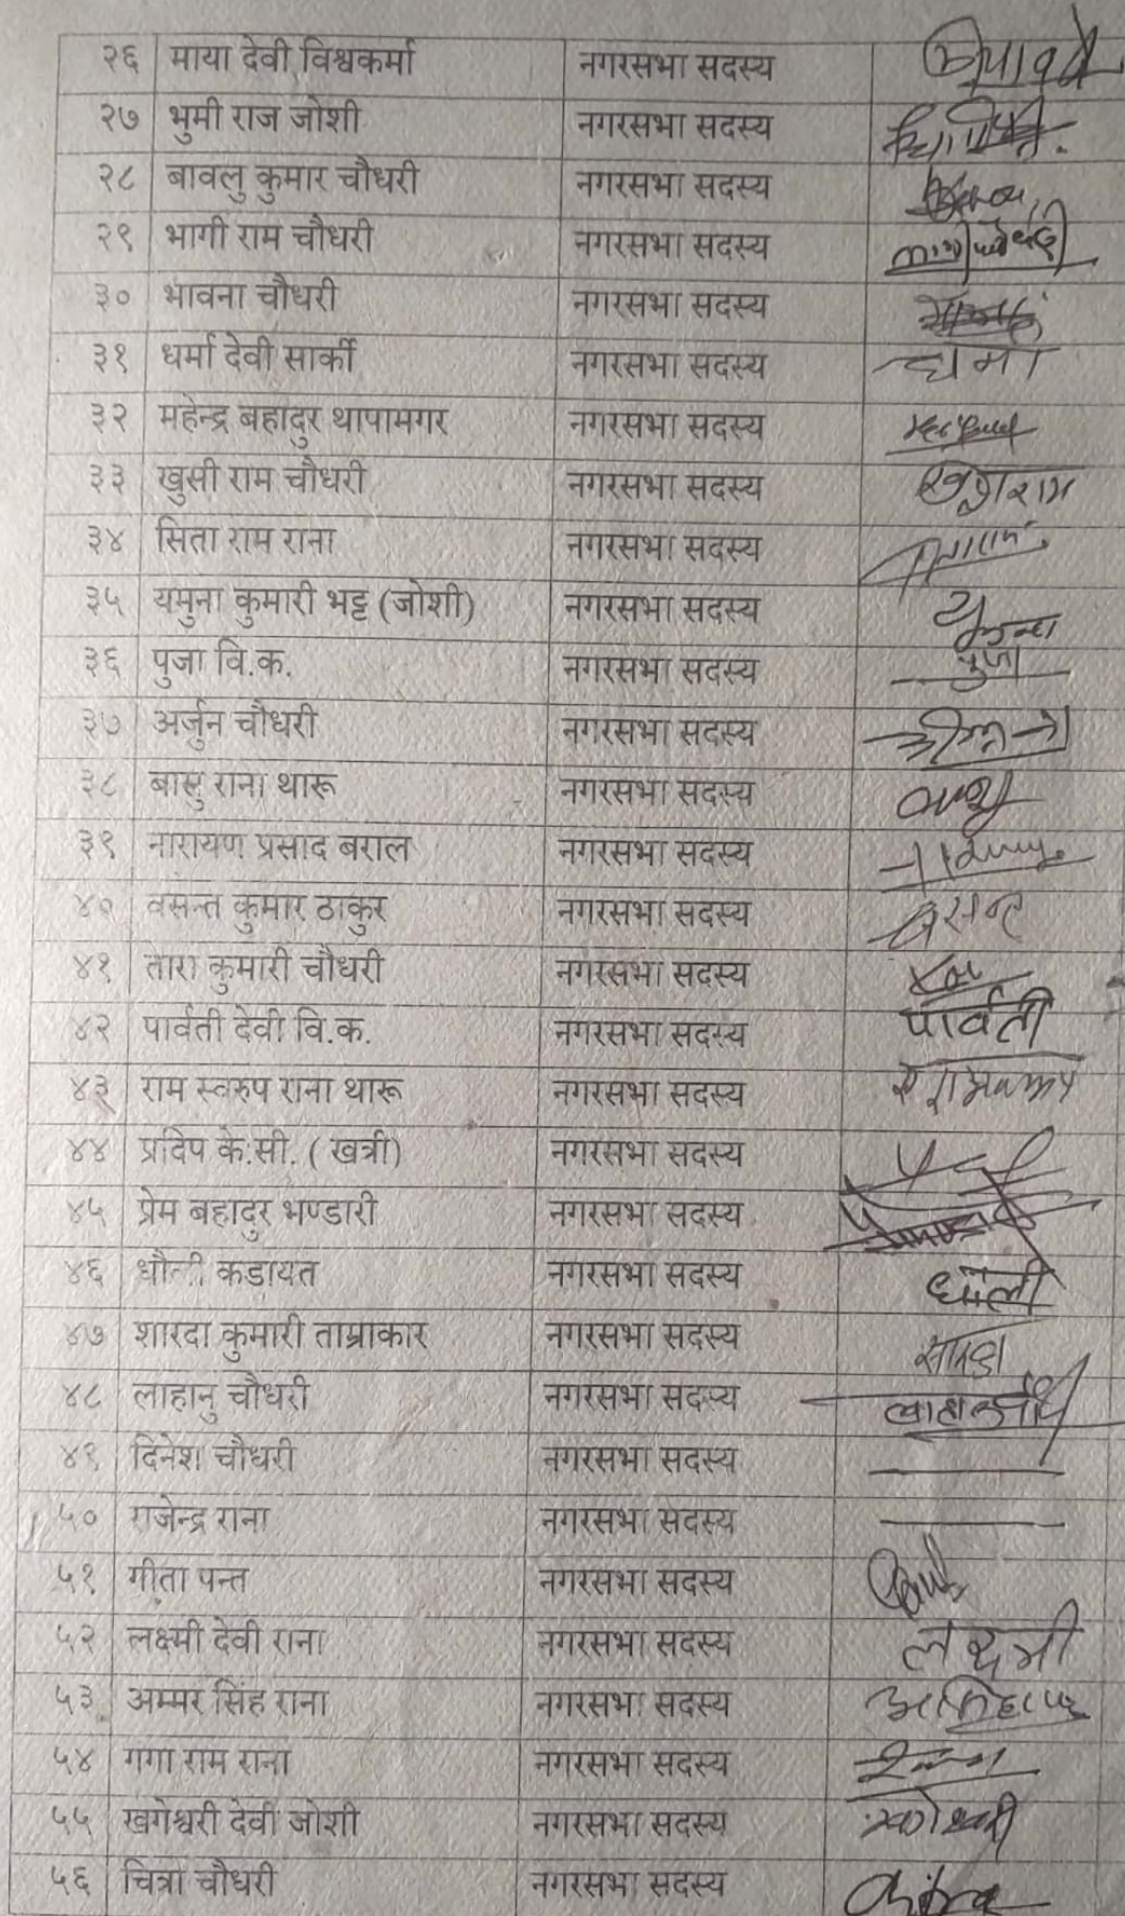 २६ माया देवी विश्वकर्मा नगरसभा सदस्य
२७ भुमी राज जोशी नगरसभा सदस्य
२८ बावलु कुमार चौधरी नगरसभा सदस्य
२९ भागी राम चौधरी नगरसभा सदस्य
३० भावना चौधरी नगरसभा सदस्य
३१ धर्मा देवी सार्की नगरसभा सदस्य धर्मा
३२ महेन्द्र बहादुर थापामगर नगरसभा सदस्य
३३ खुसी राम चौधरी नगरसभा सदस्य
३४ सिता राम राना नगरसभा सदस्य
३५ यमुना कुमारी भट्ट (जोशी) नगरसभा सदस्य
३६ पुजा वि.क. नगरसभा सदस्य पुजा
३७ अर्जुन चौधरी नगरसभा सदस्य
३८ बासु राना थारू नगरसभा सदस्य
३९ नारायण प्रसाद बराल नगरसभा सदस्य
४० वसन्त कुमार ठाकुर नगरसभा सदस्य
४१ तारा कुमारी चौधरी नगरसभा सदस्य
४२ पार्वती देवी वि.क. नगरसभा सदस्य पार्वती
४३ राम स्वरुप राना थारू नगरसभा सदस्य
४४ प्रदिप के.सी. ( खत्री) नगरसभा सदस्य
४५ प्रेम बहादुर भण्डारी नगरसभा सदस्य
४६ धौली कडायत नगरसभा सदस्य धौली
४७ शारदा कुमारी ताम्राकार नगरसभा सदस्य
४८ लाहानु चौधरी नगरसभा सदस्य
४९ दिनेश चौधरी नगरसभा सदस्य
५० राजेन्द्र राना नगरसभा सदस्य
५१ गीता पन्त नगरसभा सदस्य
५२ लक्ष्मी देवी राना नगरसभा सदस्य लक्ष्मी
५३ अम्मर सिंह राना नगरसभा सदस्य
५४ गगा राम राना नगरसभा सदस्य
५५ खगेश्वरी देवी जोशी नगरसभा सदस्य
५६ चित्रा चौधरी नगरसभा सदस्य